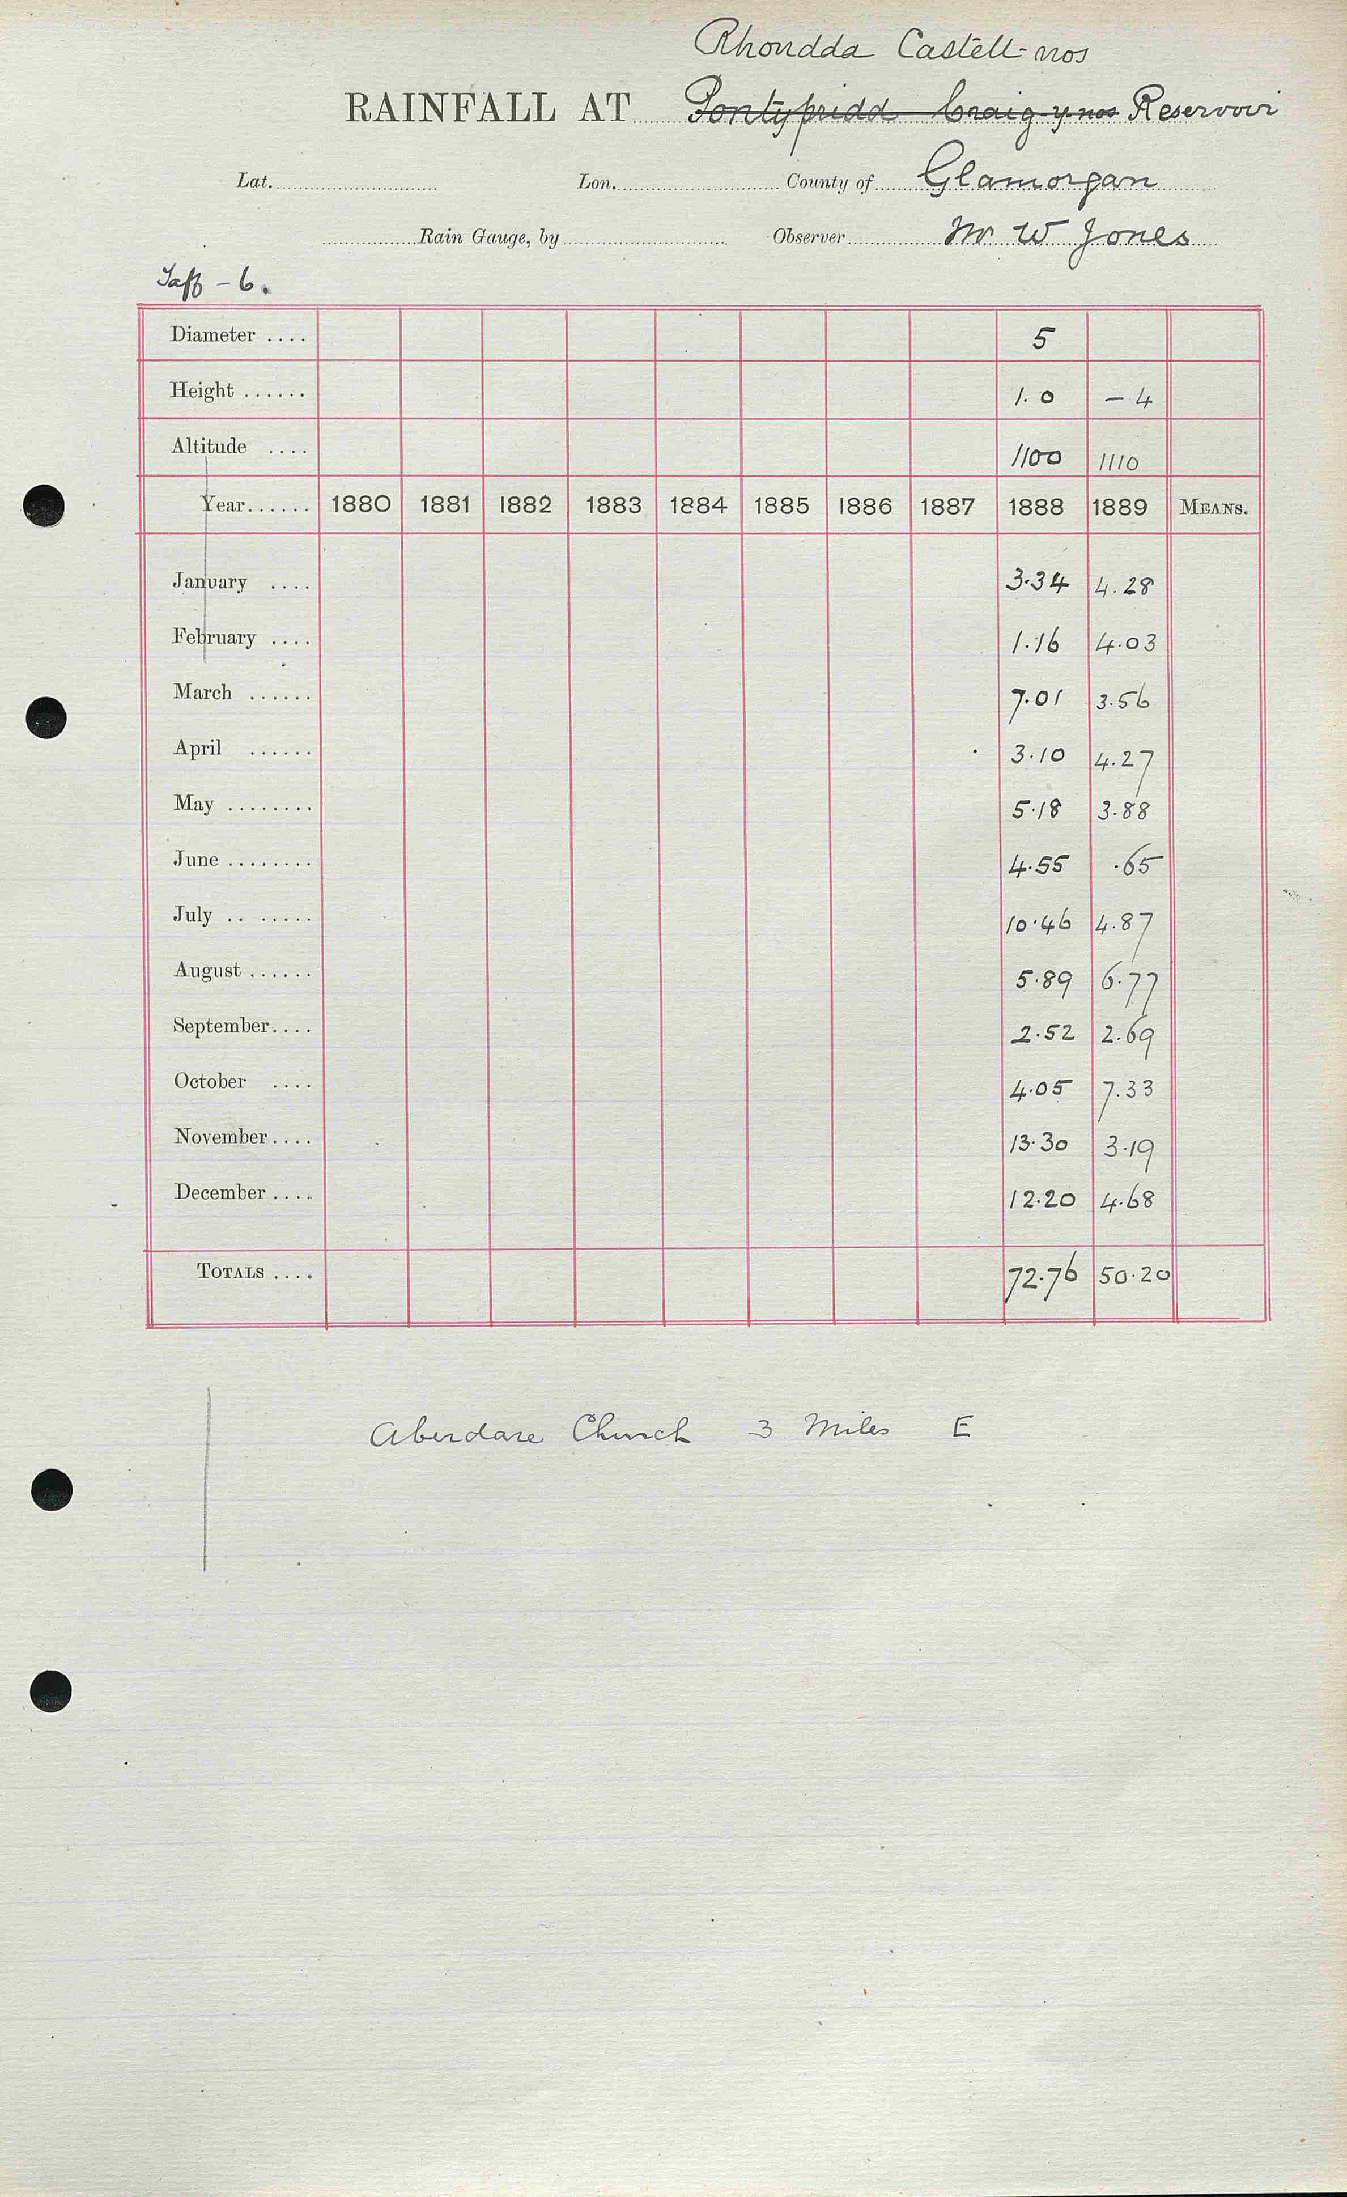 Rhondda Castell-nos
RAINFALL AT Pontypridd Craig-y-nos Reservoir
Lat. Lon. County of Glamorgan
Rain Gauge, by Observer Mr W Jones
Taff - 6.
Diameter .... 5
Height ...... 1.0 - 4
Altitude .... 1100 1110
Year...... 1880 1881 1882 1883 1884 1885 1886 1887 1888 1889 MEANS.
January .... 3.34 4.28
February .... 1.16 4.03
March ...... 7.01 3.56
April ...... 3.10 4.27
May ........ 5.18 3.88
June ........ 4.55 .65
July .. ..... 10.46 4.87
August ...... 5.89 6.77
September.... 2.52 2.69
October .... 4.05 7.33
November.... 13.30 3.19
December .... 12.20 4.68
TOTALS .... 72.76 50.20
Aberdare Church 3 Miles E